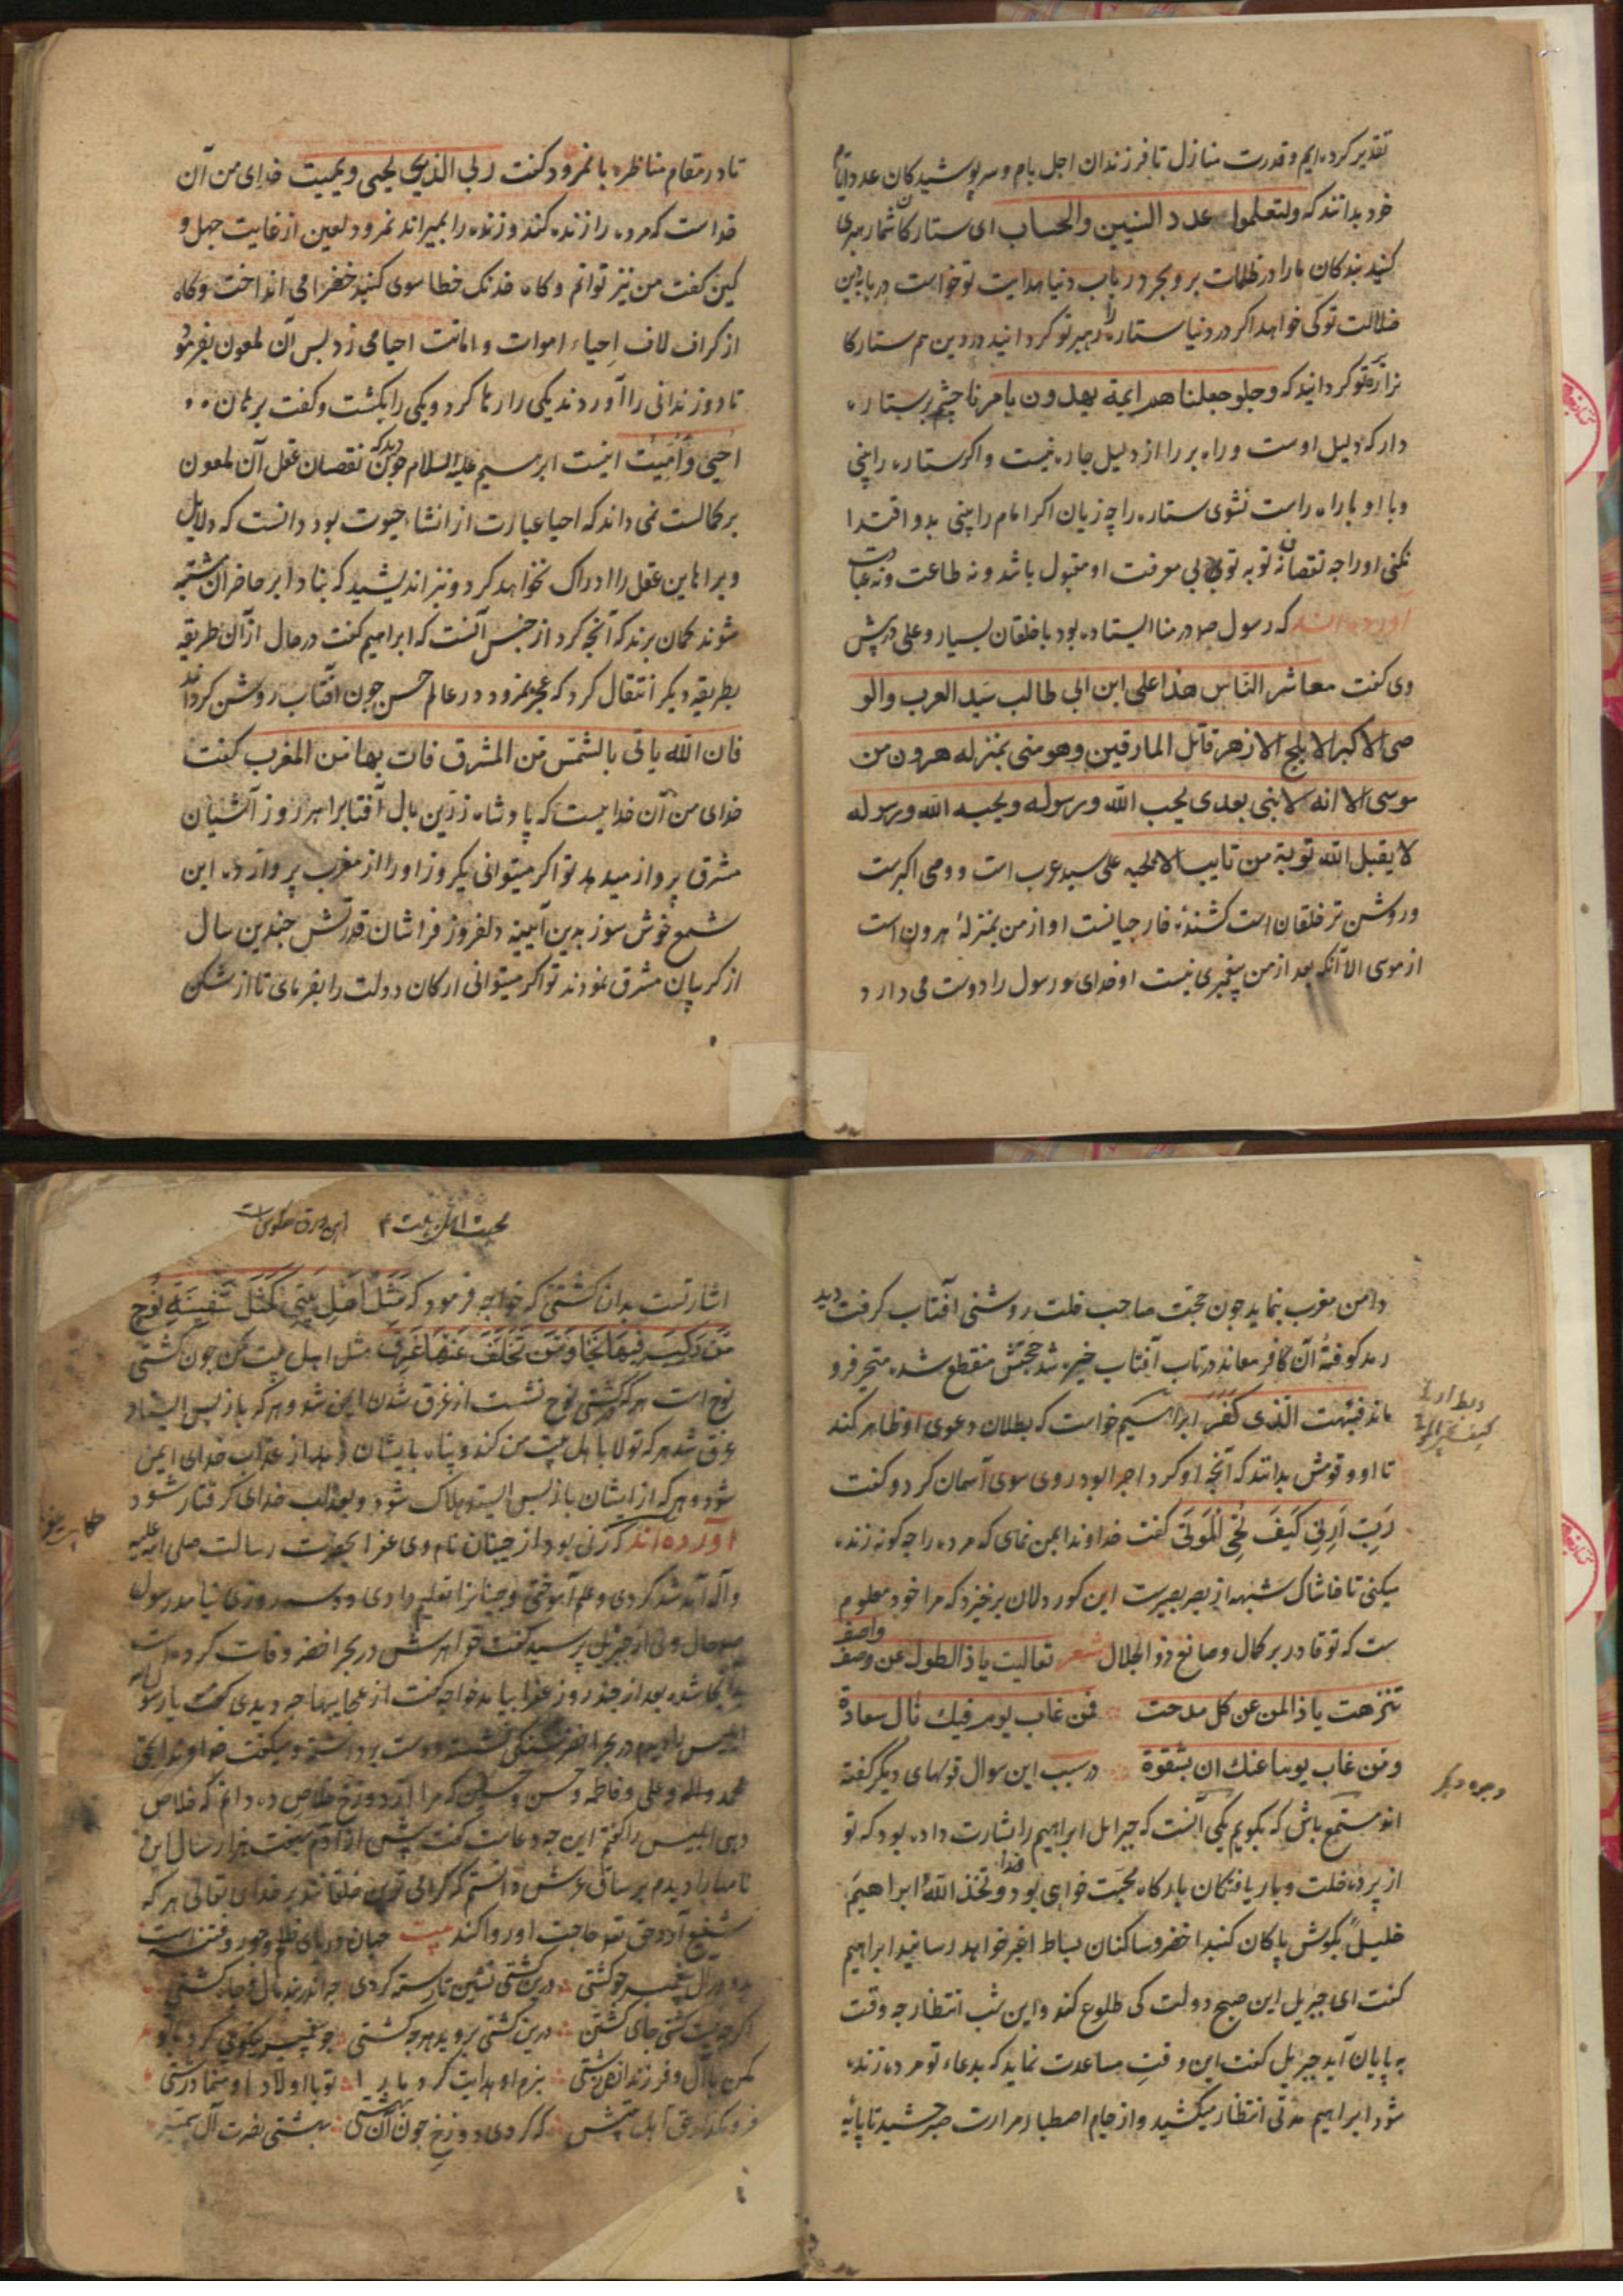 تقدیر کرده ایم و قدرت منازل تا فرزندان اجل بام و سرپوشیدکان عدد ایام
خود بدانند که ولتعلموا عدد السنین والحساب ای ستارکان شمار رهبری
کنید بندکان ما را در ظلمات بر و بحر در باب دنیا هدایت تو خواست در بادیه این
ضلالت تو کی خواهد اکر در دنیا ستاره را رهبر تو کردانید در دین هم ستارکا
نرا رهبر تو کردانید که وجعلنا هم ایمة یهدون بامرنا چشم بر ستاره
دار که دلیل اوست و راه بر را از دلیل چاره نیست و اکر ستاره را بینی
و با او با راه راست نشوی ستاره را چه زیان اکر امام را بینی بدو اقتدا
نکنی او را چه نقصان نه توبه تو بی معرفت او مقبول باشد و نه طاعت و نه عبادت
آورده اند که رسول ص در منا ایستاده بود با خلقان بسیار و علی در پیش
وی کفت معاشر الناس هذا علی ابن ابی طالب سید العرب والو
صی الاکبر الابلج الازهر قاتل المارقین وهو منی بمنزله هرون من
موسی الا انه لا بنی بعدی یحب الله ورسوله ویحبه الله ورسوله
لا یقبل الله توبة من تایب الا بحبه علی سید عرب است و وصی اکبرست
و روشن تر خلقان است کشندهٔ خارجیانست او از من بمنزلهٔ هرون است
از موسی الا آنکه بعد از من پیغمبری نیست او خدای و رسول را دوست می دارد
تا در مقام مناظره با نمرود کفت ربی الذی یحیی ویمیت خدای من آن
خداست که مرده را زنده کند و زنده را بمیراند نمرود لعین از غایت جهل و
کین کفت من نیز توانم و کاه خدنک خطا سوی کنبد خضرا می انداخت و کاه
از کزاف لاف احیاء اموات و اماتت احیا می زد پس آن لمعون بفرمود
تا دو زندانی را آوردند یکی را رها کرد و یکی را بکشت و کفت برهان
احیی وامیت اینست ابرهیم علیه السلام چون دید که نقصان عقل آن لمعون
بر کمالست نمی داند که احیا عبارت از انشاء حیوت بود دانست که دلایل
و براهین عقل را ادراک نخواهد کرد و نیز اندیشید که بنادا بر حاضران مشتبه
شوند کمان برند که آنچه کرد از جنس آنست که ابراهیم کفت در حال از آن طریقه
بطریقه دیکر انتقال کرد که عجز نمرود در عالم حس چون آفتاب روشن کرداند
فان الله یاتی بالشمس من المشرق فات بها من المغرب کفت
خدای من آن خدایست که پادشاه زرین بال آفتابرا هر روز از آشیان
مشرق پرواز میدهد تو اکر میتوانی یکروز او را از مغرب پرواز ده این
شمع خوش سوز بدین آیینه دلفروز فراشان قدرتش چندین سال
از کریبان مشرق نمودند تو اکر میتوانی ارکان دولت را بفرمای تا از شکن
دامن مغرب بنماید چون حجت صاحب خلت روشنی آفتاب کرفت دید
رمد کوفتهٔ آن کافر معاند در تاب آفتاب خیره شد حجتش منقطع شده متحیر فرو
ماند فبهت الذی کفر ابراهیم خواست که بطلان دعوی او ظاهر کند
تا او و قومش بدانند که آنچه او کرد احیا نبود روی سوی آسمان کرد و کفت
رب ارنی کیف تحی الموتی کفت خداوندا بمن نمای که مرده را چه کونه زنده
میکنی تا خاشاک شبهه از بصر بصیرت این کور دلان برخیزد که مرا خود معلوم
ست که تو قادر بر کمال و صانع ذو الجلال شعر تعالیت یا ذا الطول عن وصف واصف
تنزهت یا ذا المن عن کل مدحت فمن غاب یوم فیک نال سعادة
ومن غاب یوما عنک ان بشقوة در سبب این سوال قولهای دیکر کفته
اند مستمع باش که بکویم یکی آنست که جبرایل ابراهیم را بشارت داده بود که تو
از پرده خلت و باریافتکان بارکاه محبت خدا خواهی بود وتخذ الله ابراهیم
خلیلا بکوش پاکان کنبد اخضر و ساکنان بساط اغبر خواهد رسانید ابراهیم
کفت ای جبریل این صبح دولت کی طلوع کند و این شب انتظار چه وقت
به پایان آید جبریل کفت این وقت مساعدت نماید که بدعاء تو مرده زنده
شود ابراهیم مدتی انتظار میکشید و از جام اصطبار مرارت صبر چشید تا بپایه
وجه دیکر
محبت اهل بیت ۴ این ورق معکوس است
اشارتست بدان کشتی که خواجه فرمود که مثل اهل بیتی کمثل سفینة نوح
من رکب فیها نجا ومن تخلف عنها غرق مثل اهل بیت من چون کشتی
نوح است هر که در کشتی نوح نشست از غرق شدن ایمن شد و هر که باز پس ایستاد
غرق شد هر که تولا باهل بیت من کند و پناه بایشان دهد از عذاب خدای ایمن
شود و هر که از ایشان باز پس ایستد هلاک شود و بعذاب خدای کرفتار شود
آورده اند که زنی بود از جنیان نام وی عفرا بحضرت رسالت صلی الله علیه
وآله آمد شد کردی و علم آموختی و جنیانرا تعلیم دادی دو سه روزی نیامد رسول
ص حال وی از جبریل پرسید کفت خواهرش در بحر اخضر وفات کرده است
بآنجا شده بعد از چند روز عفرا بیامد خواجه کفت از عجایبها چه دیدی کفت یا رسول الله
ابلیس را دیدم در بحر اخضر بر سنکی نشسته و دست برداشته و میکفت خداوندا بحق
محمد و اله و علی و فاطمه و حسن و حسین که مرا از دوزخ خلاص ده دانم که خلاص
دهی ابلیس را کفتم این چه دعاست کفت پیش از آدم بیست هزار سال این
نامها را دیدم بر ساق عرش دانستم که کرامی ترین خلقانند بر خدای تعالی هر که
شفیع آرد حق تع حاجت او روا کند بیت جهان دریای ظلم و جور و فتنه است
درین کشتی نشین تا رسته کردی
اکر چه نیست کشتی جای کشتن درین کشتی بروید هر چه کشتی